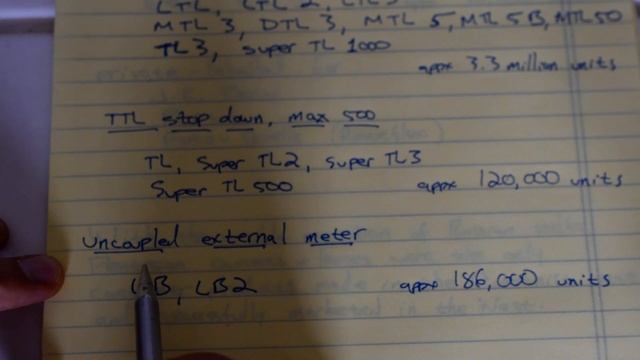 LTL, LTL 2, LTL 3
MTL 3, DTL 3, MTL 5, MTL 5B, MTL 50
TL 3, Super TL 1000
appx 3.3 million units
TTL stop down, max 500
TL, Super TL2, Super TL3
Super TL 500 appx 120,000 units
Uncoupled external meter
LB, LB2 appx 186,000 units